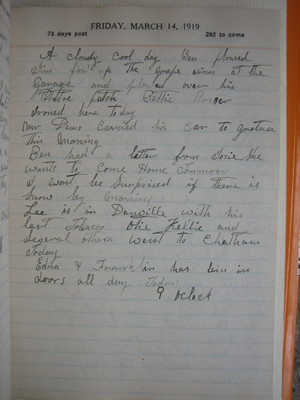 FRIDAY, MARCH 14, 1919
73 days past 292 to come
A cloudy cool day Ben plowed
Jim fixed up the grape vines at the
Garage and plowed over his
Potatoe patch Bettie
ironed here today
Mr carried his Car to Gretna
this morning
Ben had a letter from Dosie she
wants to Come Home Tomorrow
I wont be Surprised if there is
Snow by morning
Lee is in Danville with his
last Tobacco Otie Kellie and
several others went to Chatham
today
Edna & Franklin has bin in
doors all day Today
9 oclock